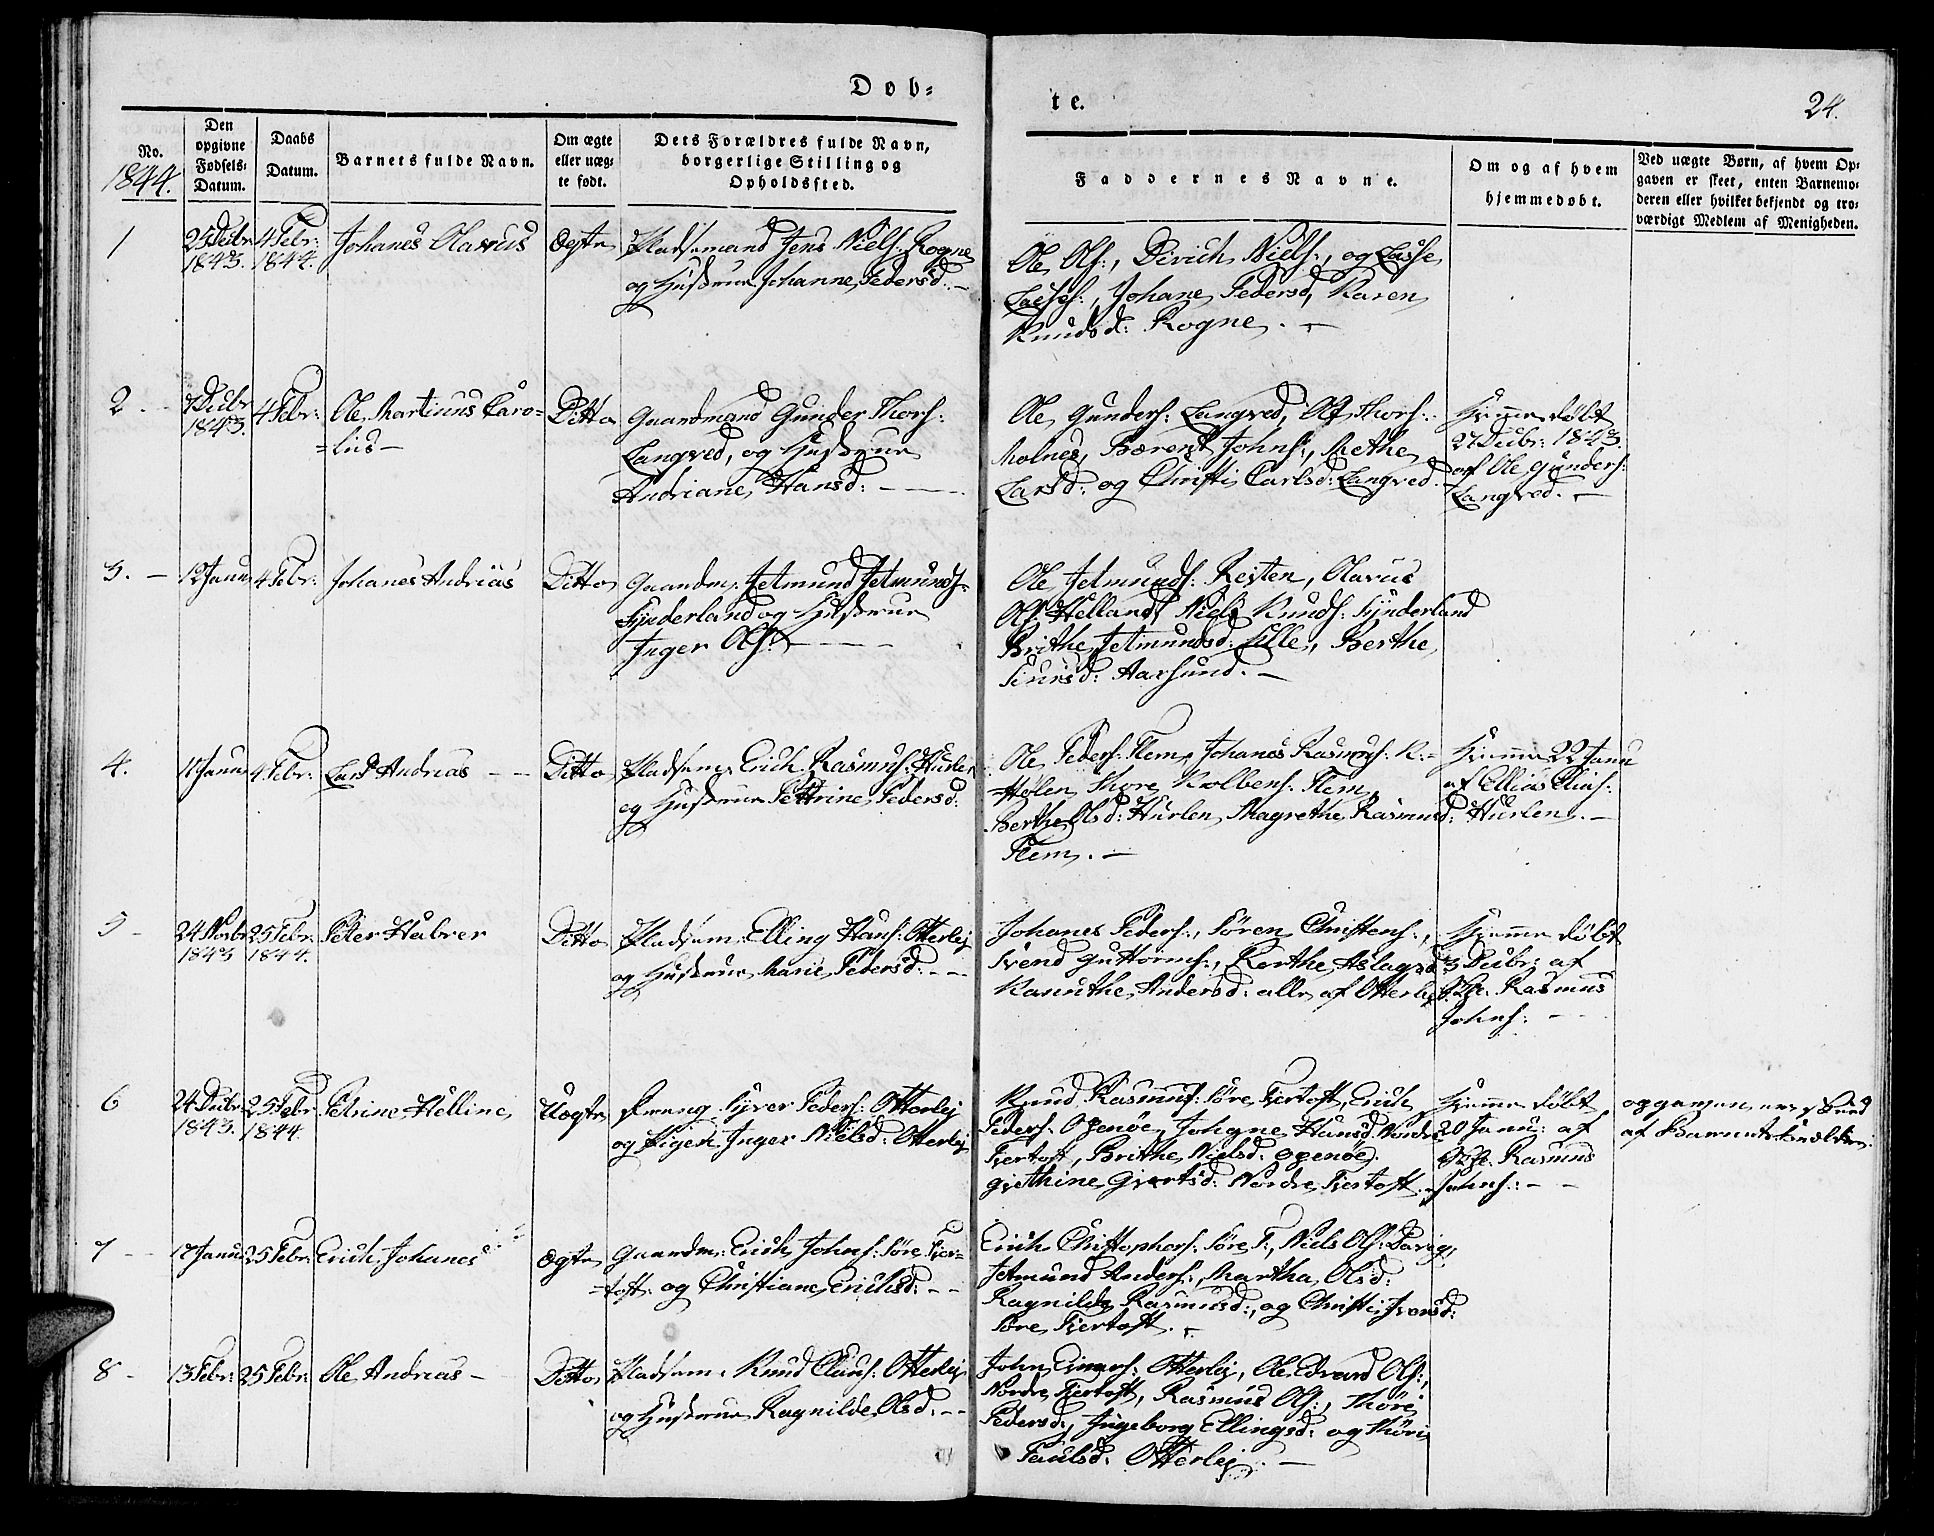 Døb-
te.
24.
No.
1844.
Den
opgivne
Fødsels-
Datum.
Daabs
Datum.
Barnets fulde Navn.
Om ægte
eller uæg-
te født.
Dets Forældres fulde Navn,
borgerlige Stilling og
Opholdssted.
Faddernes Navne.
Om og af hvem
hjemmedøbt.
Ved uægte Børn, af hvem Op-
gaven er skeet, enten Barnemo-
deren eller hvilket bekjendt og tro-
værdigt Medlem af Menigheden.
1
Decbr
1843.
4 Febr:
1844.
Johanes Olavus
Ægte
Pladsemand Jens Niels: Rogne
og Hustrue Johanne Pedersd: -
Ole Ols:, Dirich Niels:, og Lasse
Lasses:, Johane Pedersd, Karen
Knudsd: Rogne. -
2 -
7 Decbr
1843.
4 Febr:
Ole Martinus Caro=
=lius -
Ditto
Gaardmand Gunder Thors:
Langved, og Hustrue
Andriane Hansd: -
Ole Gunders: Langved, Ols Thors:
Molnes, Bærent Johns:, Methe
Larsd: og Christi Carlsd: Langved.
Hjemme døbt
27 Decbr: 1843.
af Ole Gunders:
Langved. -
3. -
12 Janu
4 Febr:
Johanes Andreas
Ditto
Gaardm: Jetmund Jetmunds=
Synderland og Hustrue
Inger Ols: -
Ole Jetmunds: Resten, Olavus
Ols: Helland, Niels Knuds: Synderland
Brithe Jetmundsd: Lille, Berthe
Siursd: Aarsund. -
4.
11 Janu
4 Febr:
Lars Andreas - -
Ditto
Pladsem: Erich Rasmus: Hurlen
og Hustrue Pettrine Pedersd:
Ole Peders: Flem, Johanes Rasmus: K:=
=Hølen, Thore Kolbens: Flem,
Berthe Olsd: Hurlen, Magrethe Rasmusd:
Flem. -
Hjemme 22 Janu
af Ellias Elias:
Hurlen. -
5 -
24 Novbr
1843
25 Febr:
1844.
Peter Habrer
Ditto
Pladsem: Elling Hans: Otterlej
og Hustrue Marie Pedersd: - -
Johanes Peders:, Søren Christens:,
Svend Guttorms:, Berthe Aslagsd
Kanuthe Andersd: alle af Otterlej
Hjemme døbt
3 Decbr: af
Rasmus
Johns: -
6
24 Decbr
1843.
25 Febr
1844.
Petrine Helline
Uægte
Dreng Syver Peders: Otterlej
og Pigen Inger Nielsd: Otterlej
Knud Rasmus: Søre Fiertoft, Erich
Peders: Ogenøe, Johane Hansd Nordre
Fiertoft, Brithe Nielsd: Ogenøe,
Grethine Giertsd: Nordre Fiertoft.
Hjemme døbt
20 Janu: af
Rasmus
Johns: - -
af Barnets
7 -
17 Janu
25 Febr
Erich Johanes
Ægte
Gaardm: Erich Johns: Søre Fier=
=toft og Christiane Erichsd: - -
Erich Christophers: Søre F:, Niels Ols:
Jetmund Anders:, Martha Olsd:
Ragnilde Rasmusd:, og Christi Iversd:
Søre Fiertoft. -
8 -
13 Febr:
25 Febr:
Ole Andreas -
Ditto
Pladsem: Knud Claus: Otterlej
og Hustrue Ragnilde Olsd: - -
John Einars: Otterlej, Ole Edvard Ols:,
Nordre Fiertoft, Rasmus Ols:, Thore
Pedersd, Ingeborg Ellingsd: og Thori
Paulsd: Otterlej. -